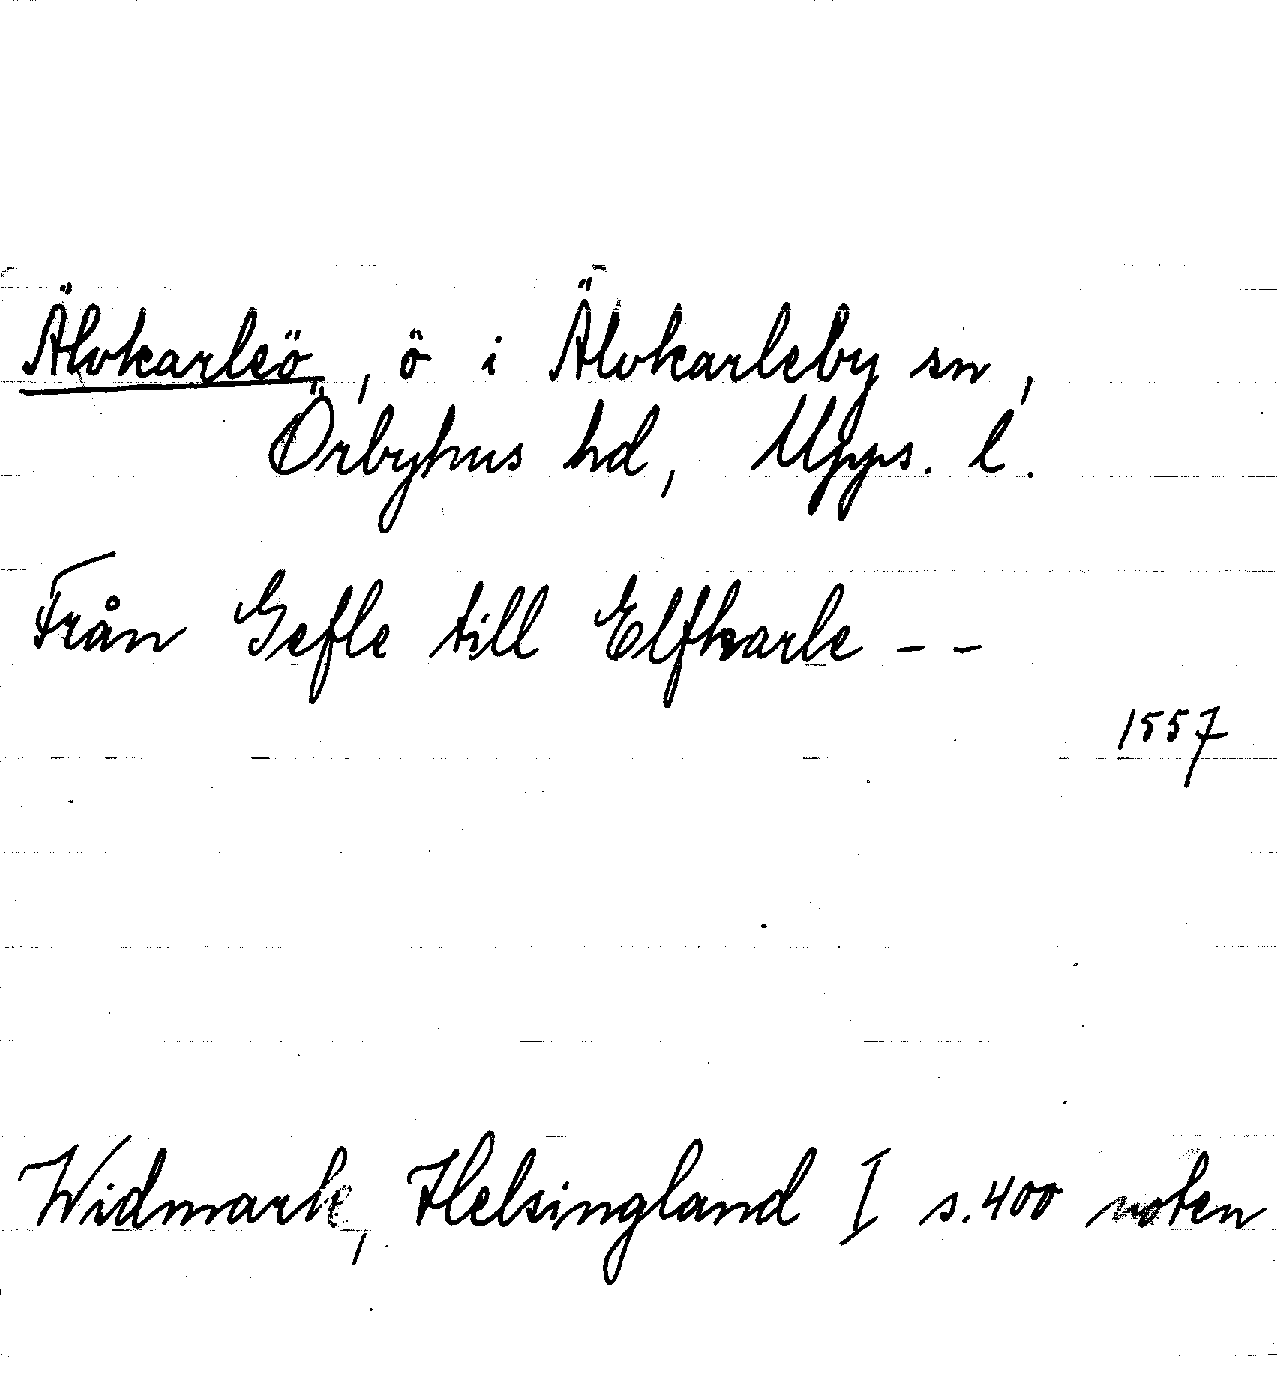 Älvkarleö, ö i Älvkarleby sn,
Örbyhus hd, Upps. l.
Från Gefle till Elfkarle - -
1557
Widmark, Helsingland I s. 400 noten